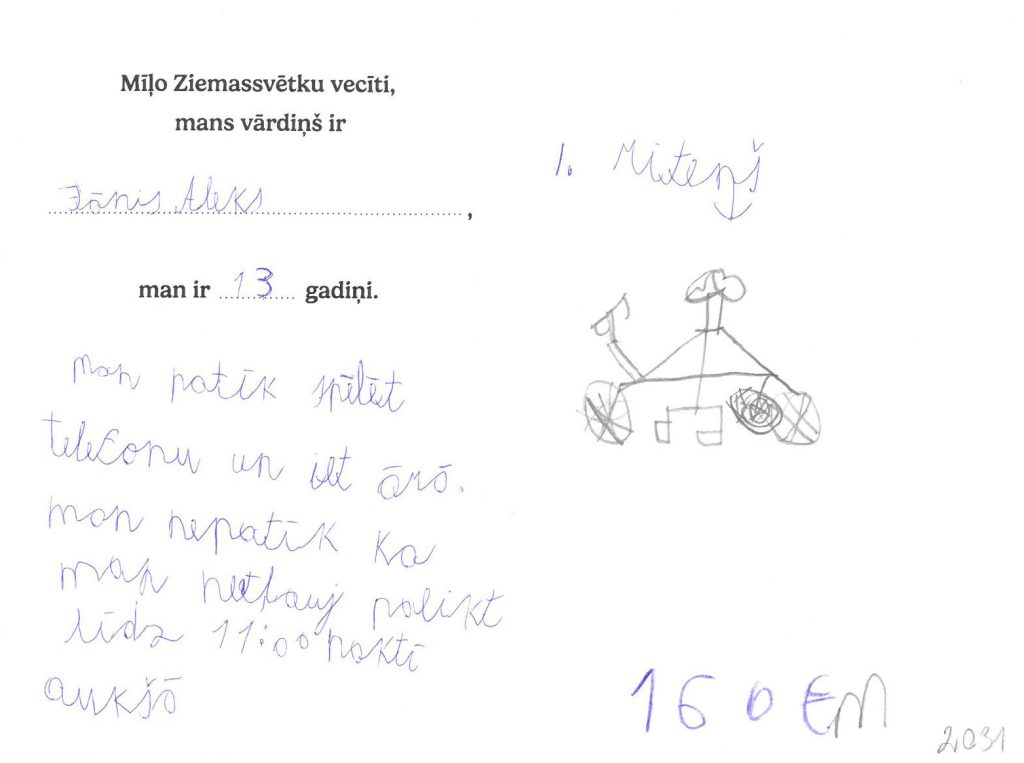 Mīļo Ziemassvētku vecīti,
mans vārdiņš ir
Jānis Aleks,
man ir 13 gadiņi.
man patīk spēlēt
telefonu un iet ārō.
man nepatīk ka
man neļauj palikt
līdz 11:00 naktī
aukšō
1. Riteņš
160 EM
2031